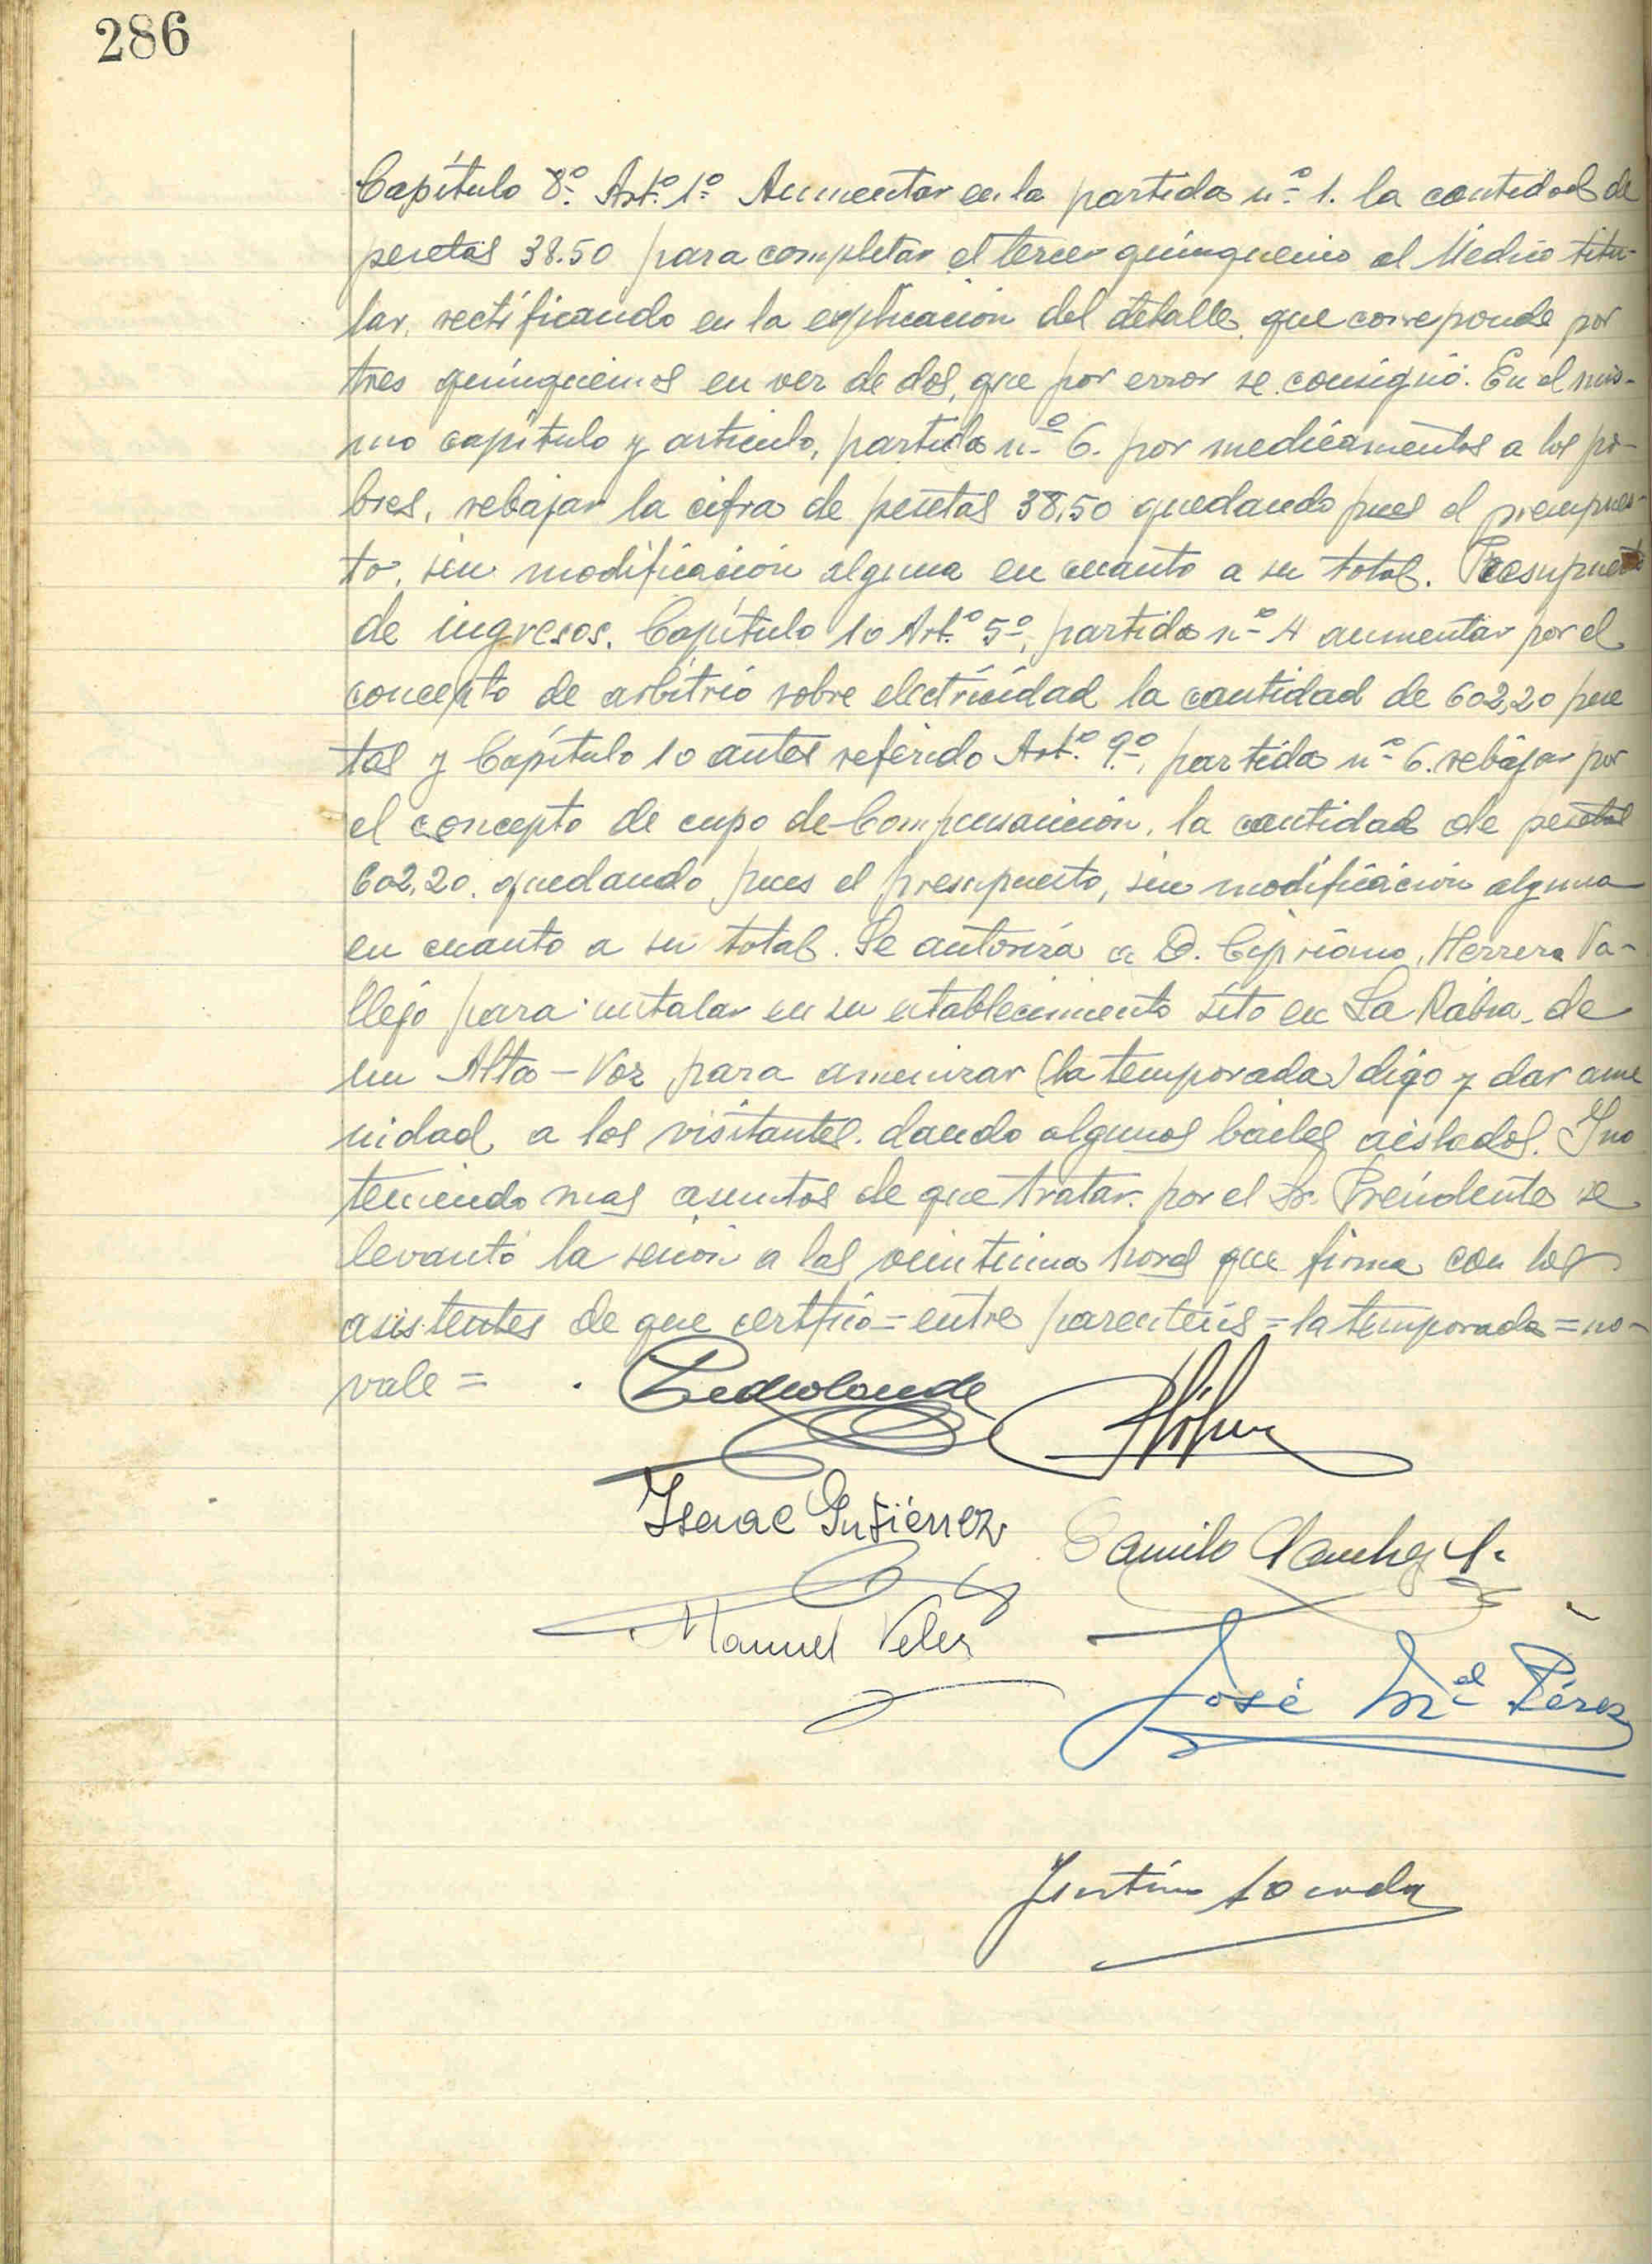 286
Capítulo 8º Artº 1º Aumentar en la partida nº 1. la cantidad de
pesetas 38.50 para completar el tercer quinquenio al Médico titu-
lar, rectificando en la explicación del detalle que corresponde por
tres quinquenios en vez de dos, que por error se consignó. En el mis-
mo capítulo y artículo, partida nº 6. por medicamentos a los po-
bres, rebajar la cifra de pesetas 38,50 quedando pues el presupues-
to, sin modificación alguna en cuanto a su total. Presupuesto
de ingresos. Capítulo 10 Artº 5º, partida nº 4 aumentar por el
concepto de arbitrio sobre electricidad la cantidad de 602,20 pese
tas y Capítulo 10 antes referido Artº 9º, partida nº 6. rebajar por
el concepto de cupo de Compensación, la cantidad de pesetas
602,20. quedando pues el presupuesto, sin modificación alguna
en cuanto a su total. Se autoriza a D. Cipriano Herrera Va-
llejo para instalar en su establecimiento sito en La Rabia de
un Alta-Voz para amenizar (la temporada) digo y dar ame
nidad a los visitantes. dando algunos bailes aislados. Y no
teniendo mas asuntos de que tratar por el Sr. Presidente se
levantó la sesión a las veintiuna horas que firma con los
asistentes de que certifico = entre parentesis = la temporada = no-
vale =
Isaac Gutiérrez
Camilo Sanchez
Manuel Velez
José Mel Pérez